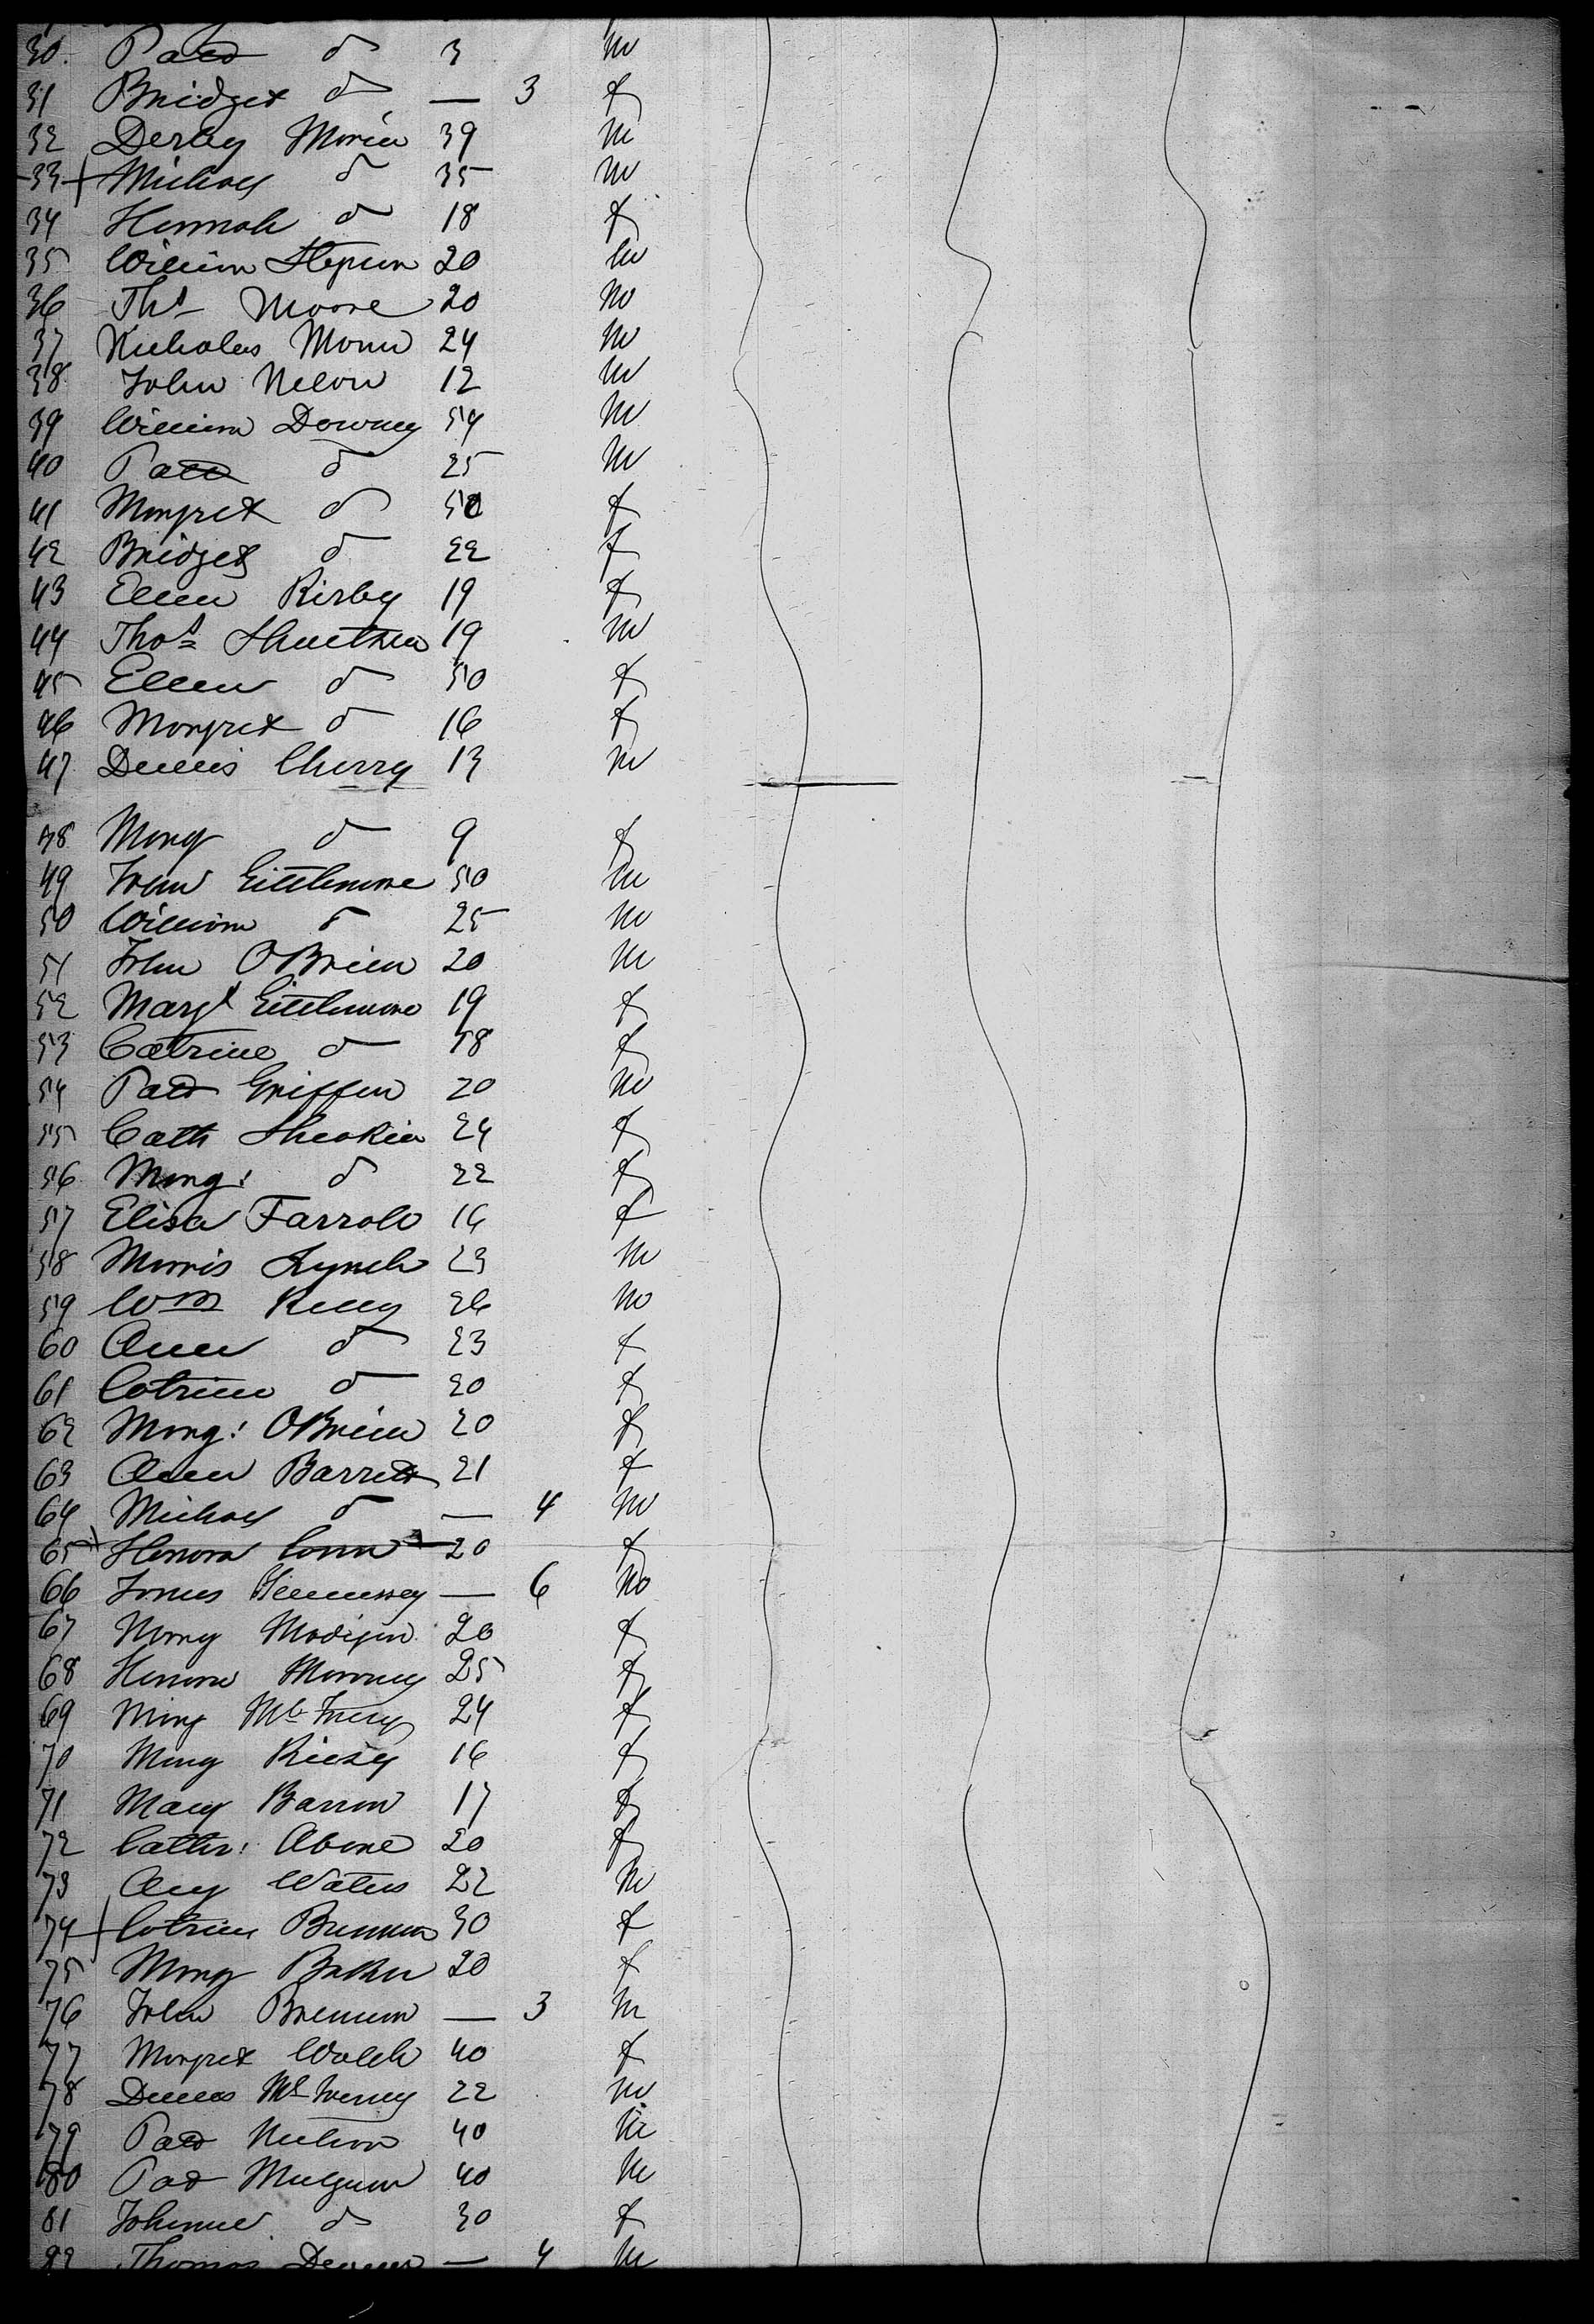 30. Patt do 3 m
31 Bridget do — 3 f
32 Derby 39 m
33 Michael do 35 m
34 Hannah do 18 f
35 William 20 m
36 Thos Moore 20 m
37 Nicholas 24 m
38 John 12 m
39 William Downey 54 m
40 Patt do 25 m
41 Margret do 50 f
42 Bridget do 22 f
43 Ellen Kirby 19 f
44 Thos 19 m
45 Ellen do 50 f
46 Margret do 16 f
47 Dennis Cherry 13 m
48 Mary do 9 f
49 50 m
50 William do 25 m
51 John OBrien 20 m
52 Margt 19 f
53 Catrine do 18 f
54 Patt Griffen 20 m
55 Cath 24 f
56 Marg: do 22 f
57 Elisa Farrole 16 f
58 Morris Lynch 23 m
59 Wm Kelly 26 m
60 Ann do 23 f
61 Catrine do 20 f
62 Marg: OBrien 20 f
63 Ann Barrett 21 f
64 Michael do — 4 m
65 Honora 20 f
66 James Hennessey — 6 m
67 20 f
68 Honora 25 f
69 Mary 24 f
70 Mary 16 f
71 Mary Barron 17 f
72 Cathr: 20 f
73 Waters 22 m
74 Catrine Brennan 30 f
75 Mary Baker 20 f
76 John Brennan — 3 m
77 Margret Walsh 40 f
78 Dennis 22 m
79 Patt 40 m
80 Pat 40 m
81 do 30 f
82 Thomas — 4 m